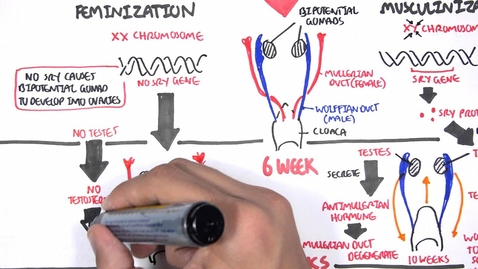 FEMINIZATION
XX CHROMOSOME
NO SRY GENE
NO SRY CAUSES
BIPOTENTIAL GONAD
TO DEVELOP INTO OVARIES
NO TESTES
NO
BIPOTENTIAL
GONADS
MULLERIAN
DUCT (FEMALE)
WOLFFIAN DUCT
(MALE)
CLOACA
6 WEEK
XY CHROMOSOME
SRY GENE
TESTES
SECRETE
ANTIMULLERIAN
HORMONE
MULLERIAN DUCT
DEGENERATE
10 WEEKS